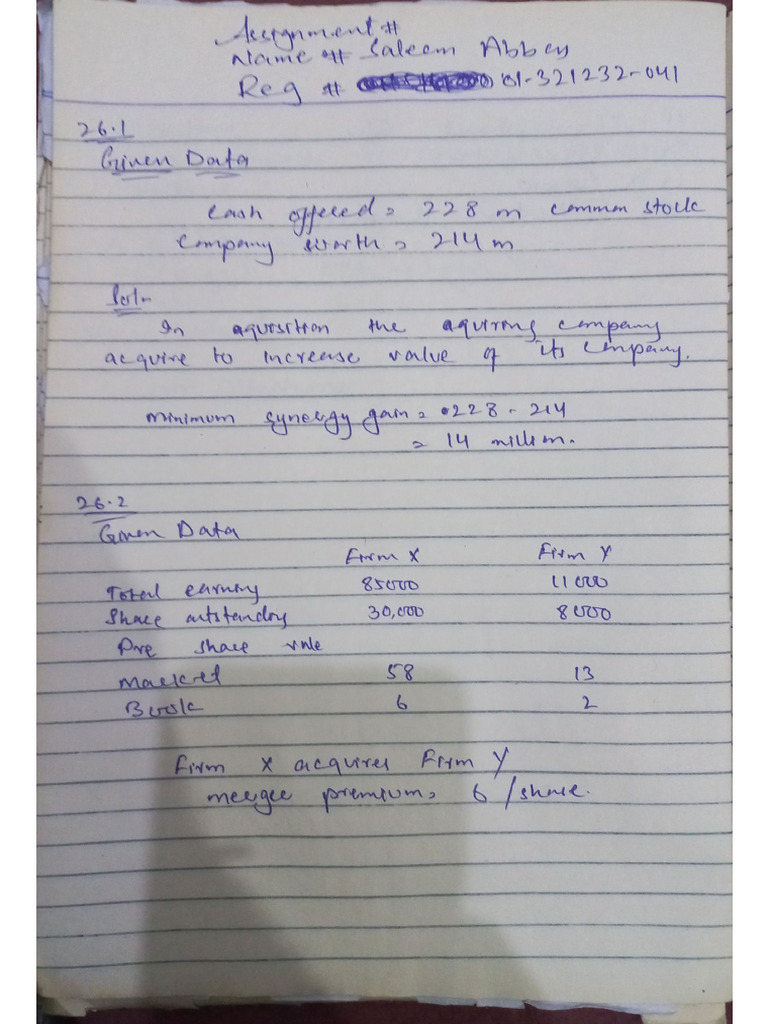 Assignment #
Name # Saleem Abbey
Reg # 01-321232-041
26.1
Given Data
Cash offered = 228 m common stock
company worth = 214 m
Soln
In aquisition the aquiring company
acquire to increase value of its company.
minimum synergy gain = 228 - 214
= 14 million.
26.2
Given Data
Firm X Firm Y
Total earning 85000 11000
Share outstanding 30,000 8000
Pre share vale
Market 58 13
Book 6 2
Firm X acquires Firm Y
merger premium = 6 /share.